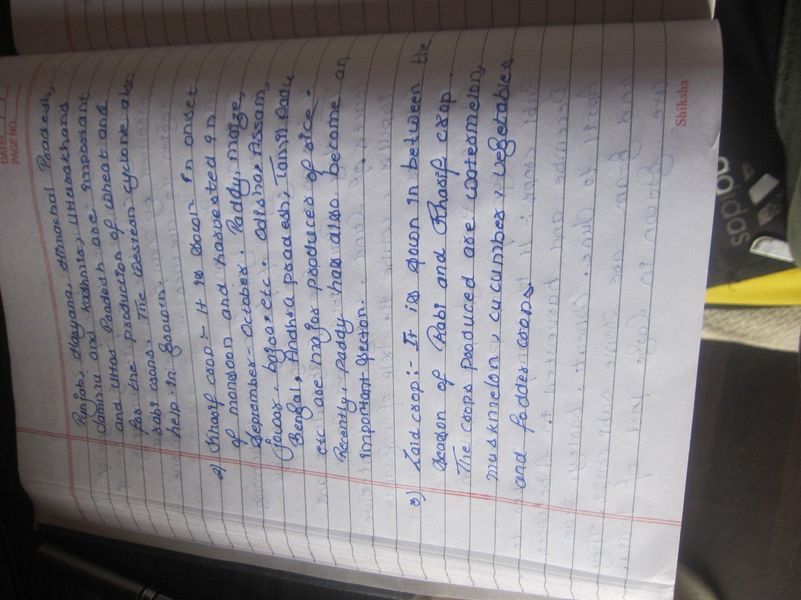 DATE: / /
PAGE NO.
Punjab, Haryana, Himachal Pradesh,
Jammu and Kashmir, Uttarakhand
and Uttar Pradesh are important
for the production of wheat and
rabi crops. The western cyclone also
help in growin.
2) Kharif crop:- It is sown in onset
of monsoon and harvested in
September-October. Paddy, maize,
jawar, bajra etc. Odisha, Assam,
Bengal, Andhra pradesh, Tamil nadu
etc are major produces of rice.
Recently Paddy has also become an
important
3) Zaid crop:- It is grown in between the
season of Rabi and Kharif crop.
The crops produced are watermelon,
muskmelon, cucumber, vegetables
and fodder crops
Shiksha